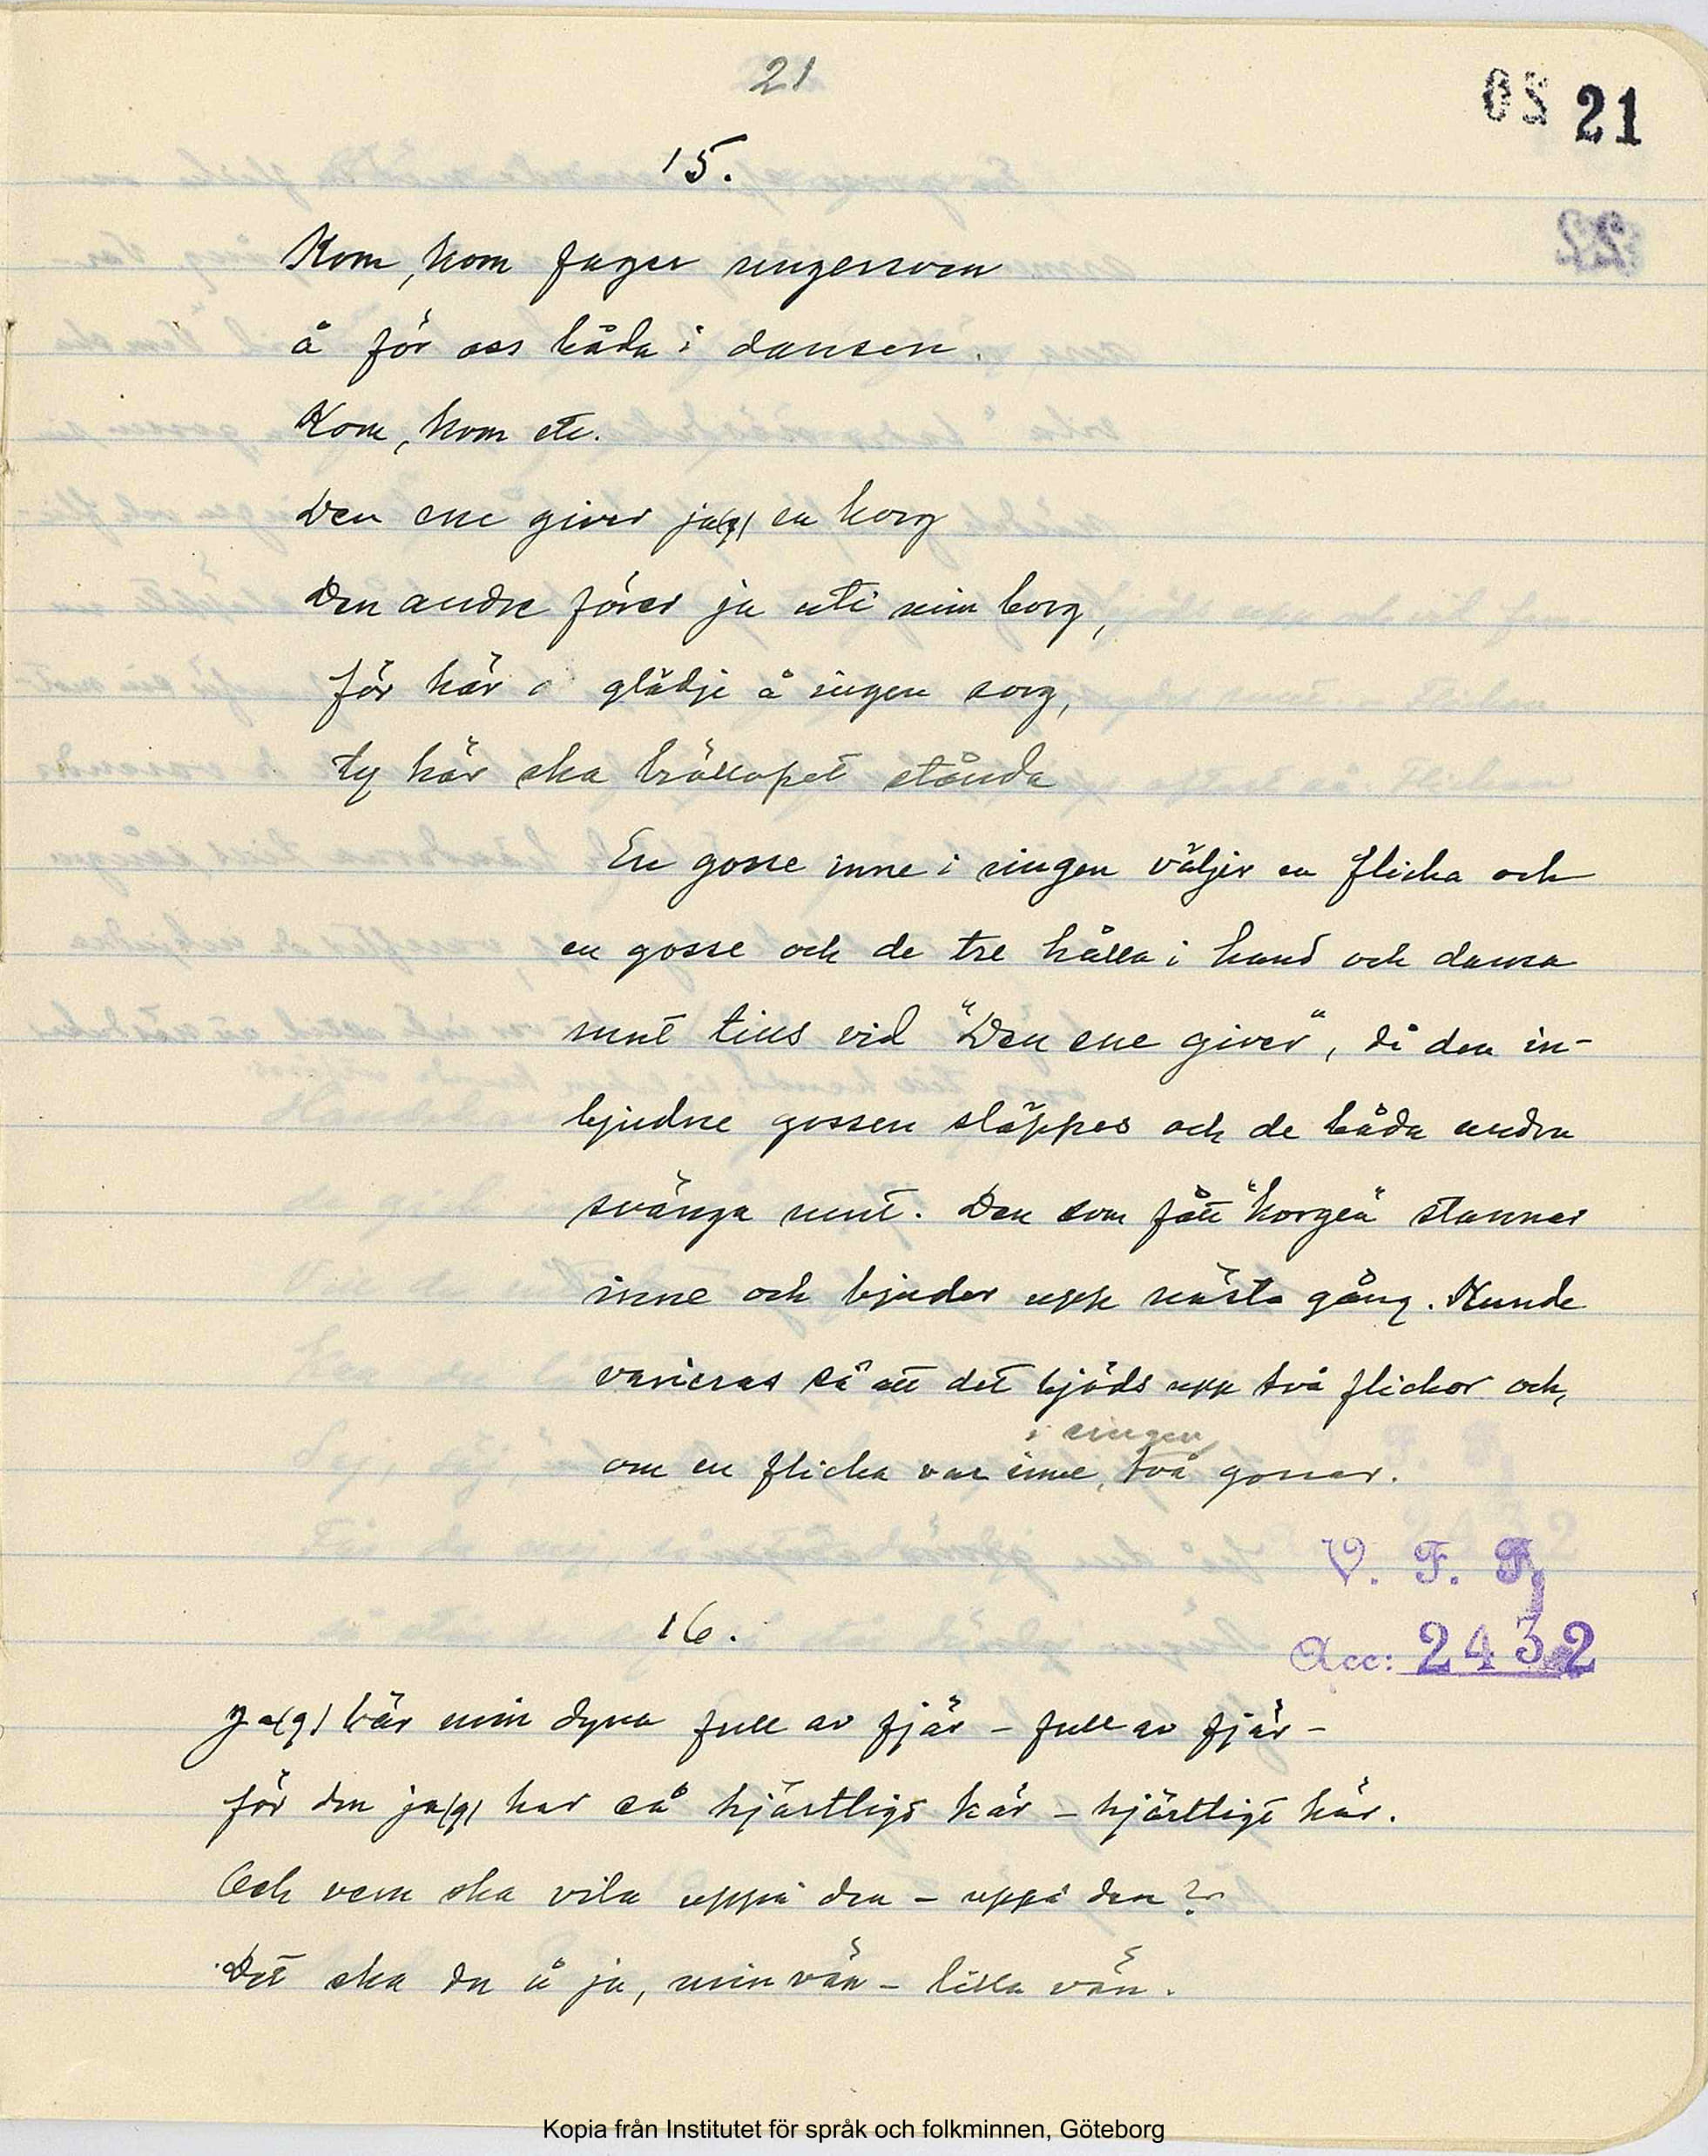 21
21
15.
Kom, kom fager ungersven
å för oss båda i dansen.
Kom, kom etc.
Den ene giver ja(g) en korg
Den andre förer ja uti min borg,
för här glädje å ingen sorg,
ty här ska bröllopet stånda
En gosse inne i ringen väljer en flicka och
en gosse och de tre hålla i hand och dansa
runt tills vid "Den ene giver", då den in-
bjudne gossen släppes och de båda andra
svänga runt. Den som fått "korgen" stannar
inne och bjuder upp nästa gång. Kunde
varieras så att det bjöds upp två flickor och,
i ringen
om en flicka var inne, två gossar.
V. F. F.
Acc: 2432
16.
Ja(g) bär min dyna full av fjär – full av fjär –
för den ja(g) har så hjärtligt kär – hjärtligt kär.
Och vem ska vila uppå den – uppå den?
Det ska du å ja, min vän – lilla vän.
Kopia från Institutet för språk och folkminnen, Göteborg